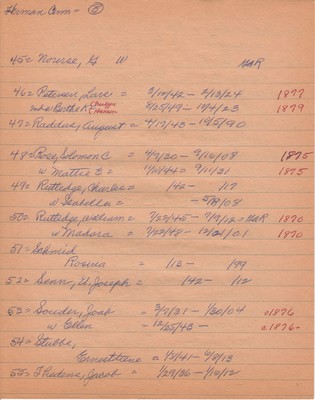 Herman Cem = 6
45 = Nourse, G W GAR
46 = Petersen, Lars = 3/10/42 - 2/13/24 1877
8/25/49 - 10/4/23 1879
47 = Raddus, August = 4/17/43 - 10/5/90
48 = Ross, Solomon C = 4/9/20 - 9/16/08 1875
w Mattie E = - 9/11/21 1875
49 = Rutledge, Charles = 142 - /17
w Isabella = - 5/19/08
50 = Rutledge, William = 7/22/45 - 7/9/12 = GAR 1870
w Madora = 7/22/48 - 12/21/01 1870
51 = Schmid
Rosina = /13 - /99
52 = Senn, U. Joseph = 142 - /12
53 = Souder, Joab = 3/7/31 - 1/30/04 c1876
w Ellen = 12/25/43 - c1876
54 = Stubbe,
Ernestine = 1/2/41 - 6/9/13
55 = Thedens, Jacob = 1/29/36 - 1/10/12